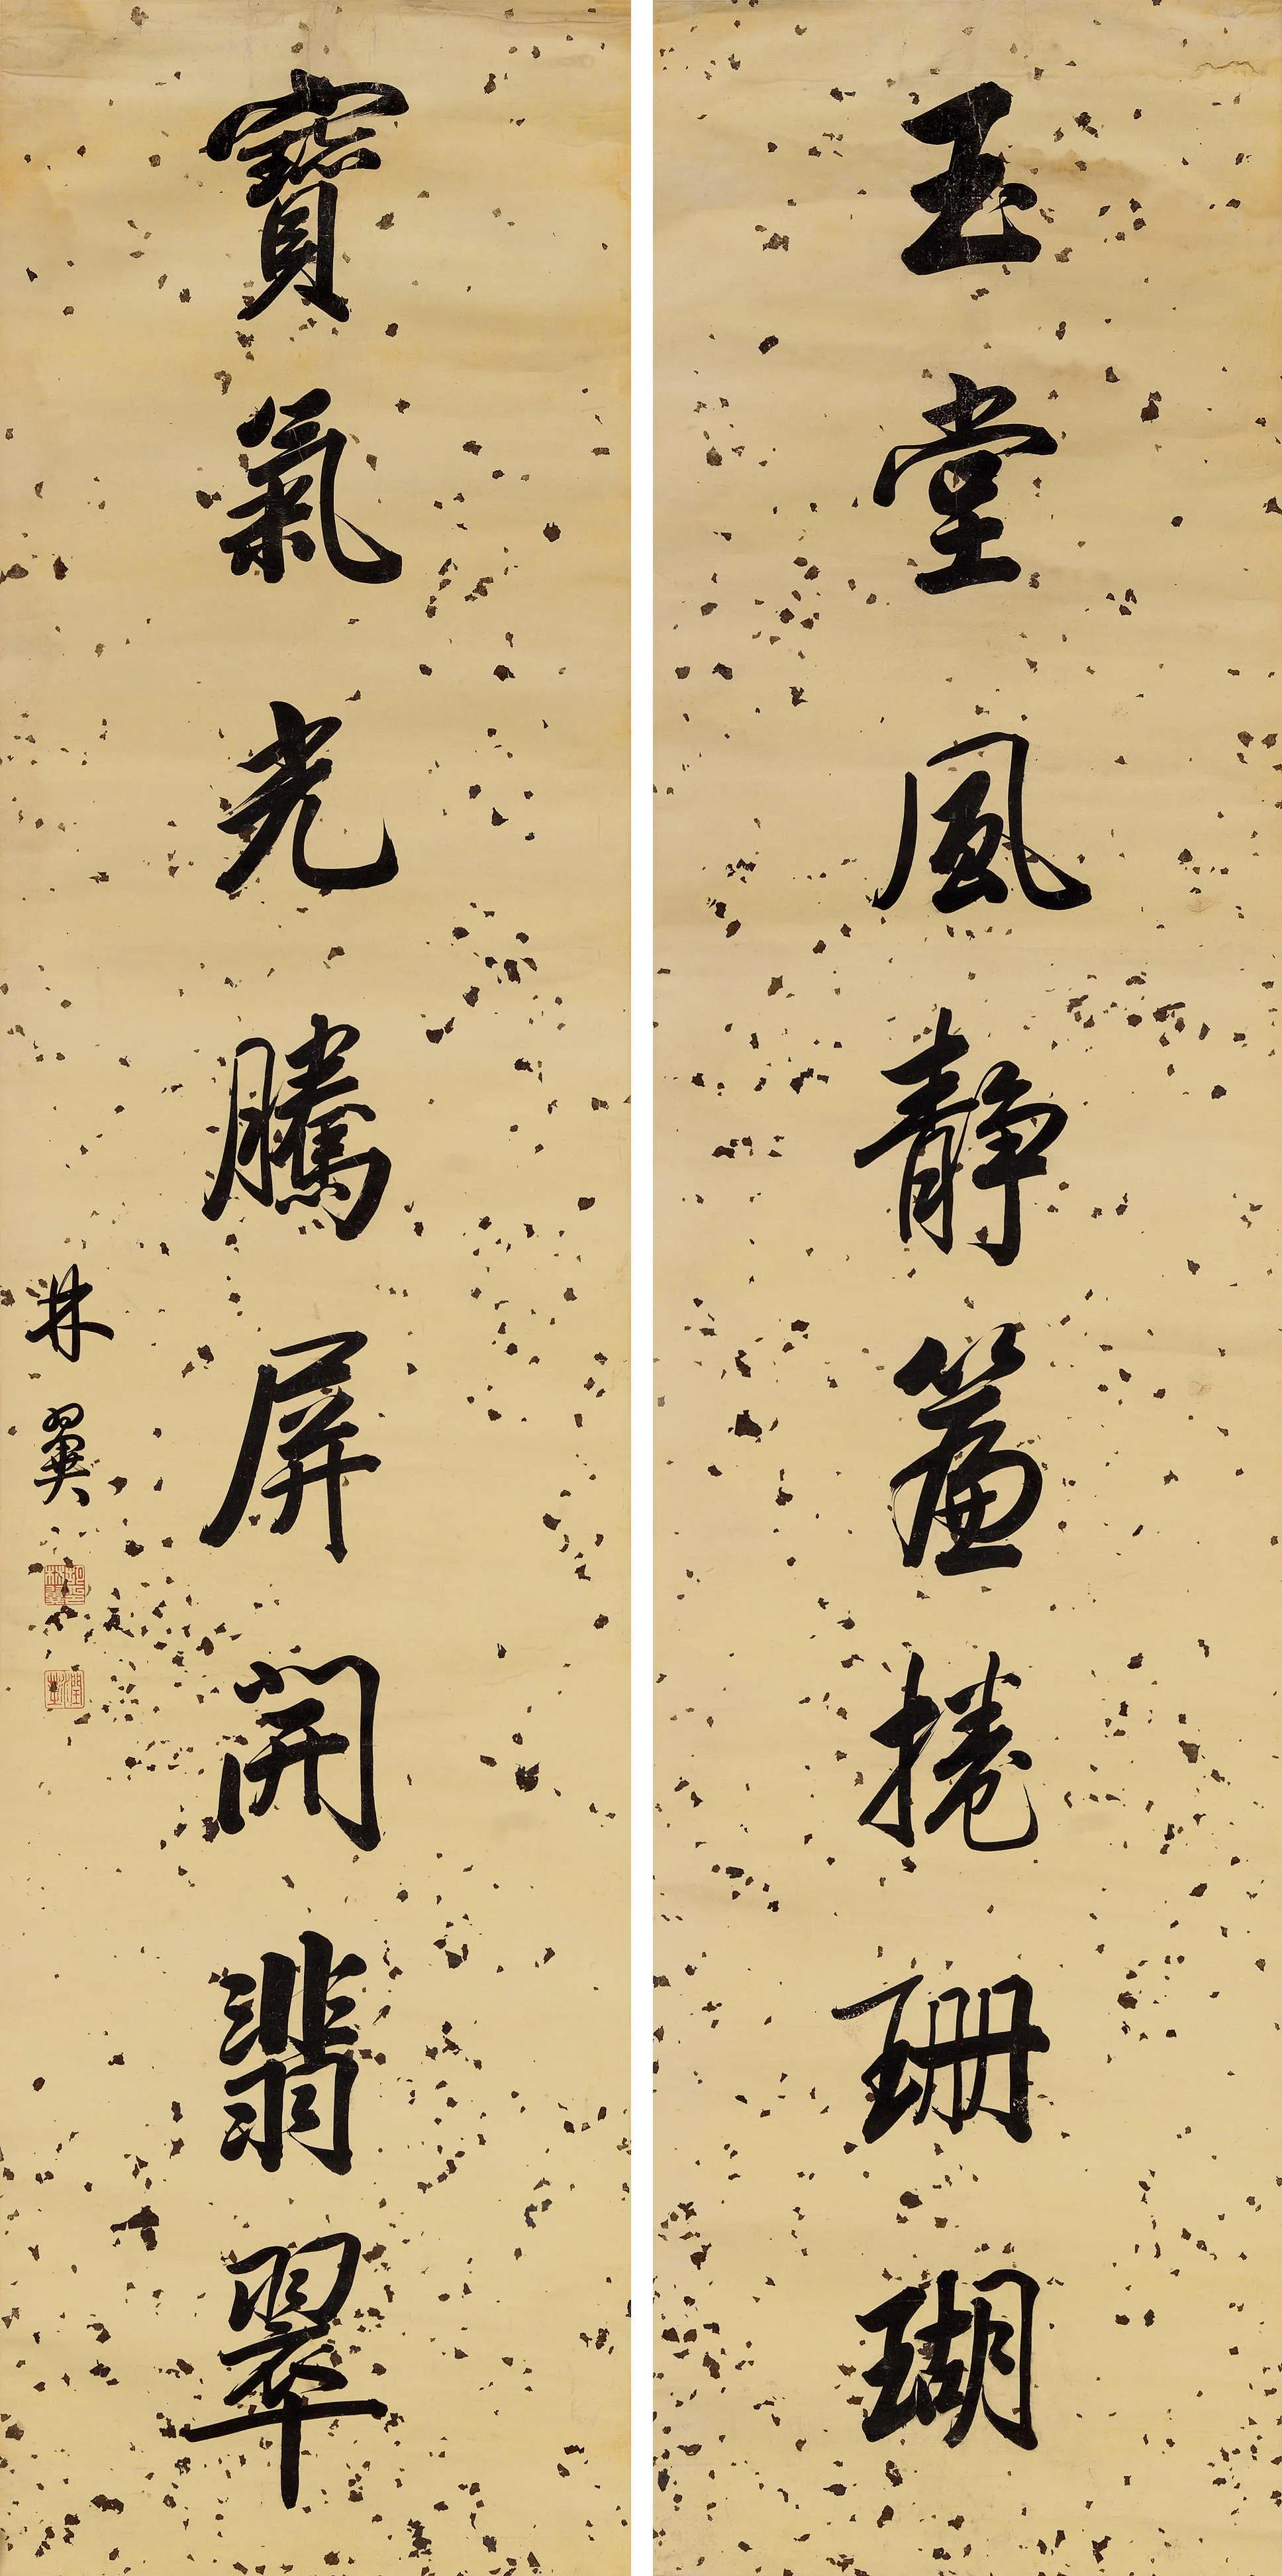 玉堂風靜簾捲珊瑚
寶氣光騰屏開翡翠
林翼